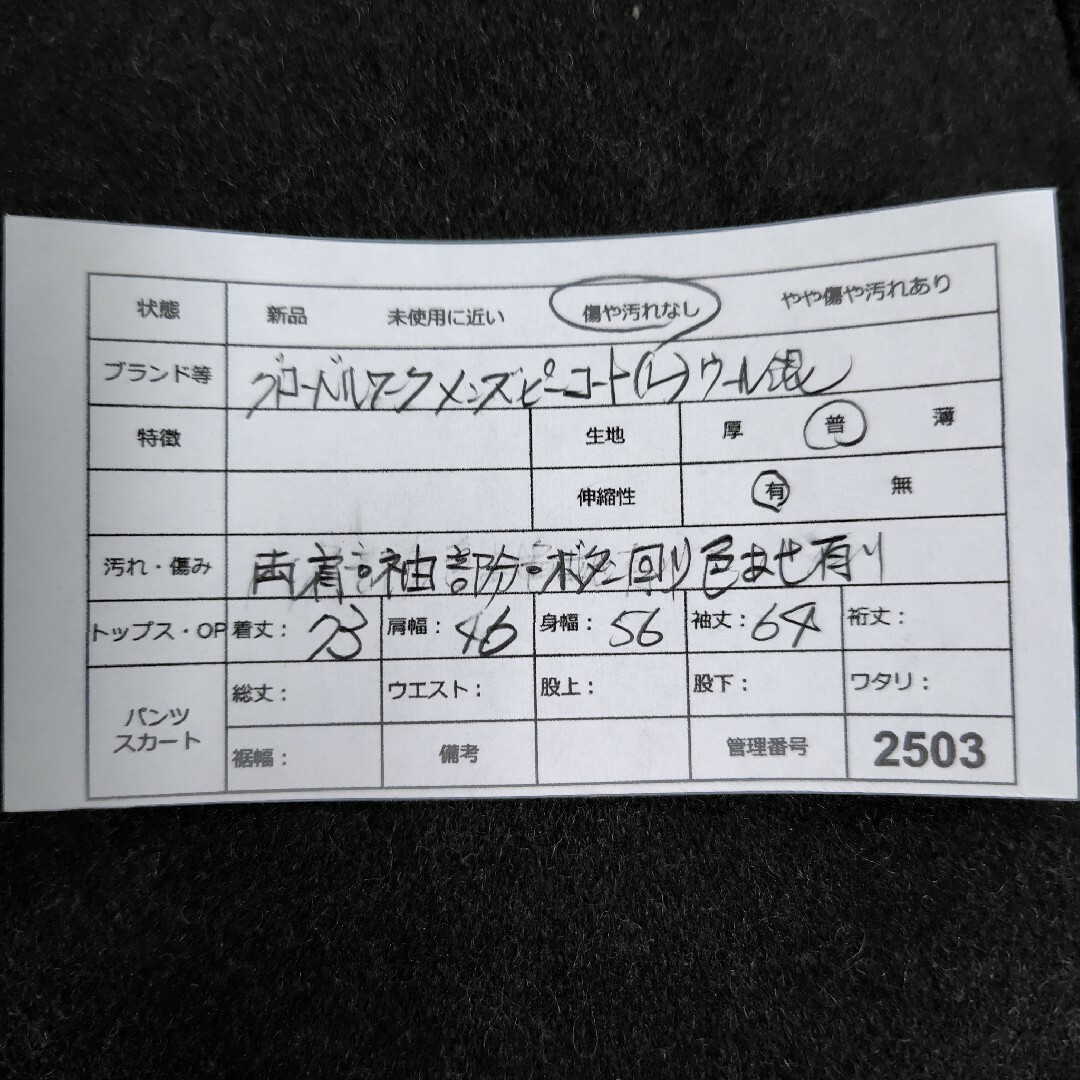 状態 新品 未使用に近い 傷や汚れなし やや傷や汚れあり
ブランド等 グローバルワークメンズピーコート(L)ウール混
特徴 生地 厚 普 薄
伸縮性 有 無
汚れ・傷み 両肩袖部分・ボタン回り色あせ有り
トップス・OP 着丈: 73 肩幅: 46 身幅: 56 袖丈: 64 裄丈:
パンツ スカート 総丈: ウエスト: 股上: 股下: ワタリ:
裾幅: 備考 管理番号 2503